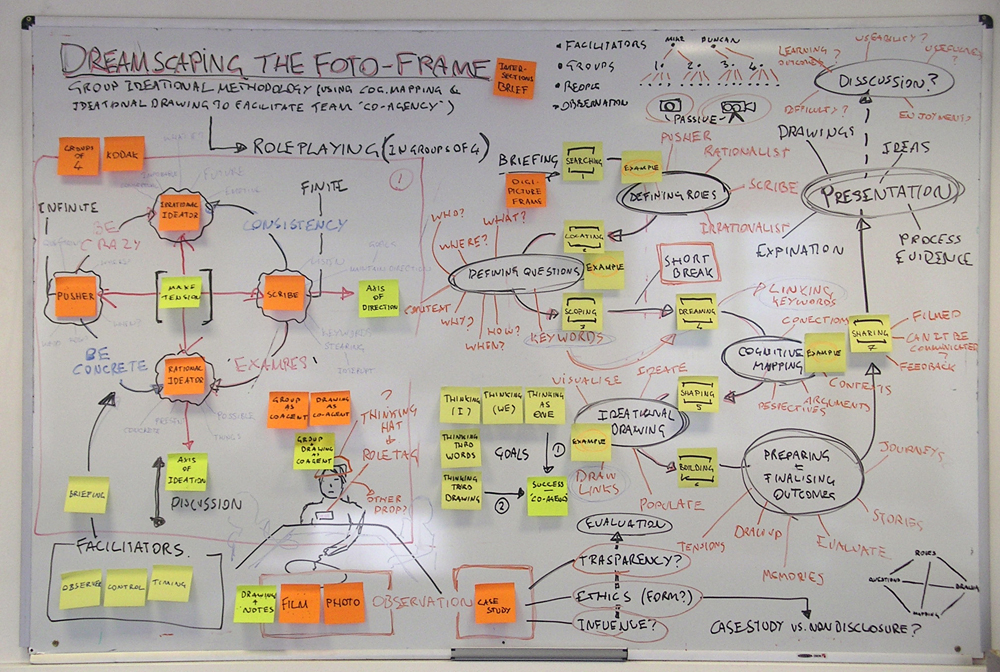 DREAMSCAPING THE FOTO-FRAME
GROUP IDEATIONAL METHODOLOGY (USING COG. MAPPING &
IDEATIONAL DRAWING TO FACILITATE TEAM "CO-AGENCY")
INTER-
SECTIONS
BRIEF
FACILITATORS
GROUPS
PEOPLE
OBSERVATION
MIKE
DUNCAN
1.
2.
3.
4.
PASSIVE
LEARNING
OUTCOMES?
USEABILITY?
DISSCUSSION?
DIFFICULTY?
ENJOYMENT?
ROLEPLAYING (IN GROUPS OF 4)
GROUPS
OF
4
KODAK
1
INFINITE
FINITE
FUTURE
IRRATIONAL
IDEATOR
BE
CRAZY
CONSISTENCY
PUSHER
MAKE
TENSION
SCRIBE
AXIS
OF
DIRECTION
GOALS
MAINTAIN DIRECTION
KEYWORDS
STEERING
BE
CONCRETE
RATIONAL
IDEATOR
'EXAMPLES'
POSSIBLE
THINGS
PRESENT
CONCRETE
BRIEFING
AXIS
OF
IDEATION
DISCUSSION
FACILITATORS.
OBSERVER
CONTROL
TIMING
GROUP
AS
COAGENT
DRAWING
AS
CO-AGENT
GROUP
+ DRAWING
AS
COAGENT
?
THINKING
HAT
ROLE TAG
OTHER
PROP?
DRAWING
+
NOTES
FILM
PHOTO
OBSERVATION
CASE
STUDY
BRIEFING
SEARCHING
1
EXAMPLE
DIGI-
PICTURE
FRAME
DEFINING ROLES
PUSHER
RATIONALIST
SCRIBE
IRRATIONALIST
LOCATING
2
EXAMPLE
DEFINING QUESTIONS
WHO?
WHAT?
WHERE?
CONTEXT
WHY?
WHEN?
HOW?
KEYWORDS
SCOPING
3
SHORT
BREAK
DREAMING
4
LINKING
KEYWORDS
CONECTIONS
COGNITIVE
MAPPING
EXAMPLE
CONTEXTS
ARGUMENTS
PESPECTIVES
SHAPING
5
VISUALISE
IDEATE
IDEATIONAL
DRAWING
EXAMPLE
DRAW
LINKS
POPULATE
BUILDING
6
PREPARING
+
FINALISING
OUTCOMES
JOURNEYS
STORIES
EVALUATE
MEMORIES
DRAW UP
TENSIONS
SHARING
7
FILMED
CAN IT BE
COMMUNICATED?
FEEDBACK
DRAWINGS
IDEAS
PRESENTATION
EXPINATION
PROCESS
EVIDENCE
THINKING
(I)
THINKING
(WE)
THINKING
AS ONE
THINKING
THRO
WORDS
GOALS
1
THINKING
THRO
DRAWING
2
SUCCESS
=
CO-AGENCY
EVALUATION
TRASPARENCY?
ETHICS (FORM?)
INFUENCE?
CASE STUDY VS. NON DISCLOSURE?
ROLES
QUESTIONS
DRAWING
MAPPING